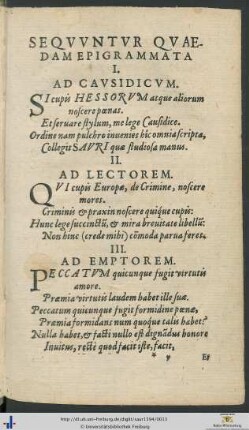 SEQVVNTVR QVAE-
DAM EPIGRAMMATA
I.
AD CAVSIDICVM.
SI cupis HESSORVM atque aliorum
noscere pœnas.
Et seruare stylum, me lege Causidice.
Ordine nam pulchro inuenies hic omnia scripta,
Collegit SAVRI quæ studiosa manus.
II.
AD LECTOREM.
QVI cupis Europæ, de Crimine, noscere
mores.
Criminis & praxin noscere quisque cupis:
Hunc lege succinctū, & mira breuitate libellū:
Non hinc (crede mihi) cōmoda parua feres.
III.
AD EMPTOREM.
PECCATVM quicunque fugit virtutis
amore.
Præmia virtutis laudem habet ille suæ.
Peccatum quicunque fugit formidine pœnæ,
Præmia formidans num quoque talis habet?
Nulla habet, & facti nullo est dignādus honore
Inuitus, recte quod facit iste, facit,
* v Et
http://dl.ub.uni-freiburg.de/diglit/saur1594/0013
© Universitätsbibliothek Freiburg